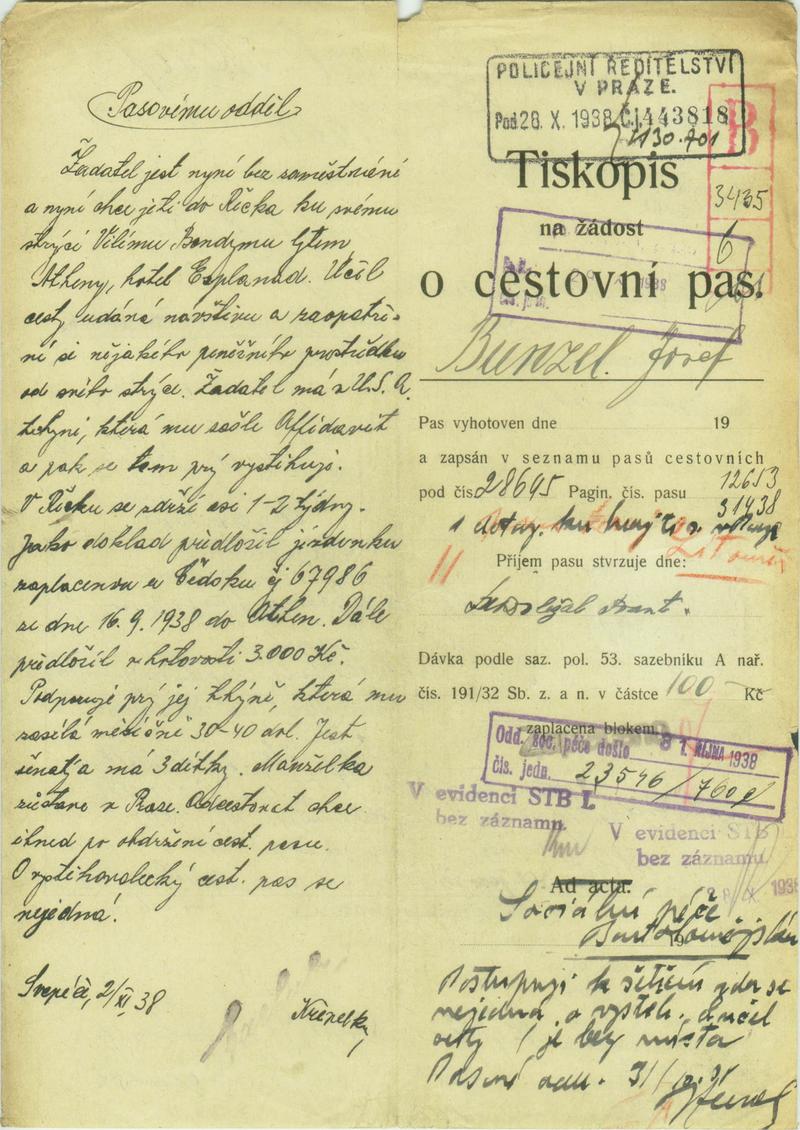 Pasovému odděl.
Žadatel jest nyní bez zaměstnání
a nyní chce jeti do Řecka ku svému
strýci Vilímu Bondymu
Atheny, hotel Esplanad. Účel
cesty udává návštěvu a zaopatře-
ní si nějakého peněžního prostředku
od svého strýce. Žadatel má v U.S.A.
tchyni, která mu zašle Affidavit
a pak se tam prý vystěhuje.
V Řecku se zdrží asi 1-2 týdny.
Jako doklad předložil jízdenku
zaplacenou u Čedoku čj 67986
ze dne 16.9.1938 do Athen. Dále
předložil v hotovosti 3.000 Kč.
Podporuje prý jej tchýně, která mu
zasílá měsíčně 30-40 dol. Jest
ženat a má 3 dítky. Manželka
zůstane v Praze. Odcestovat chce
ihned po obdržení cest. pasu.
O vystěhovalecký cest. pas se
nejedná.
2/XI 38
POLICEJNÍ ŘEDITELSTVÍ
V PRAZE.
Pod 28. X. 1938 Čj. 443818
B
Tiskopis
3435
na žádost
6
o cestovní pas.
Bunzel Josef
Pas vyhotoven dne 19
a zapsán v seznamu pasů cestovních
12653
pod čís. 28695 Pagin. čís. pasu
31438
11
Příjem pasu stvrzuje dne:
Dávka podle saz. pol. 53. sazebníku A nař.
čís. 191/32 Sb. z. a n. v částce 100 Kč
zaplacena blokem.
Odd. soc. péče došlo 31. ŘÍJNA 1938
čís. jedn. 23546/760
V evidenci STB I.
bez záznamu.
V evidenci STB
bez záznamu.
Ad acta.
Sociální péče
19
Postupuji k šetření zda se
nejedná o vystěh. a účel
cesty / je bez místa